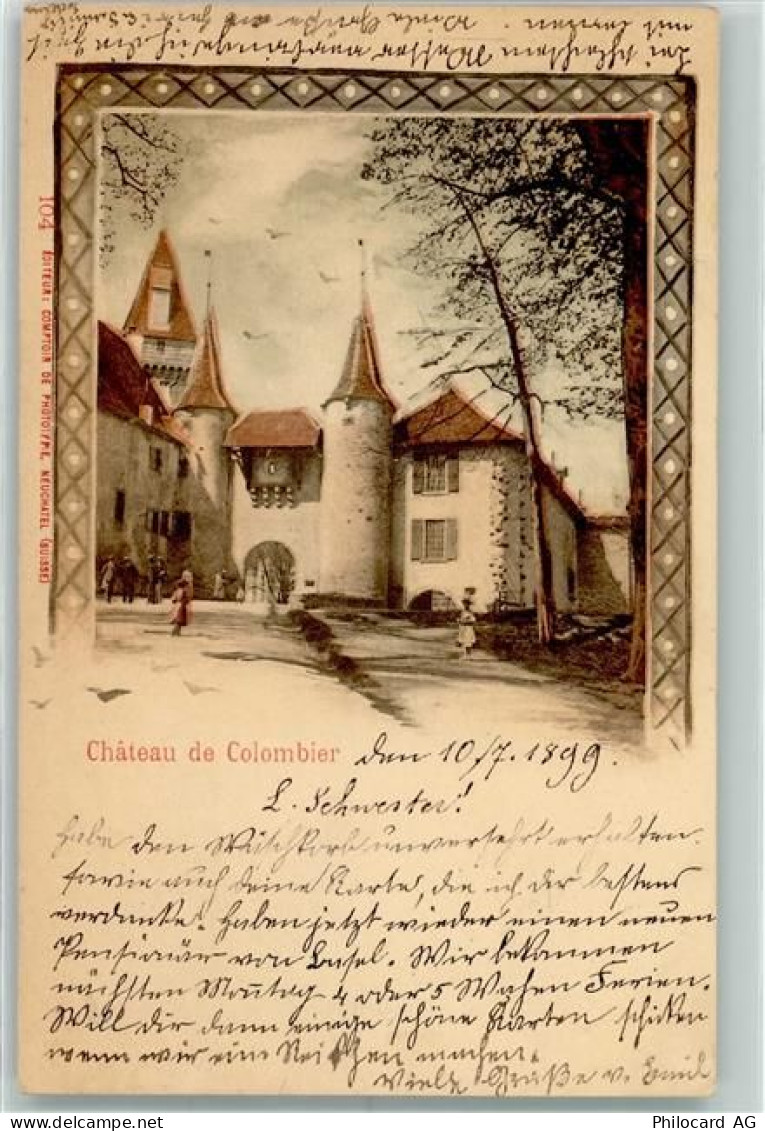 104 ÉDITEUR: COMPTOIR DE PHOTOTYPIE, NEUCHATEL (SUISSE)
Château de Colombier
den 10/7. 1899.
L. Schwester!
Habe den Wäschkorb unversehrt erhalten.
sowie auch deine Karte, die ich dir bestens
verdanke. Haben jetzt wieder einen neuen
Pensionär von Basel. Wir bekommen
nächsten Montag 4 oder 5 Wochen Ferien.
Will dir dann einige schöne Karten schiken
wenn wir ein Reischen machen.
Viele Grüße v. Emil
Philocard AG